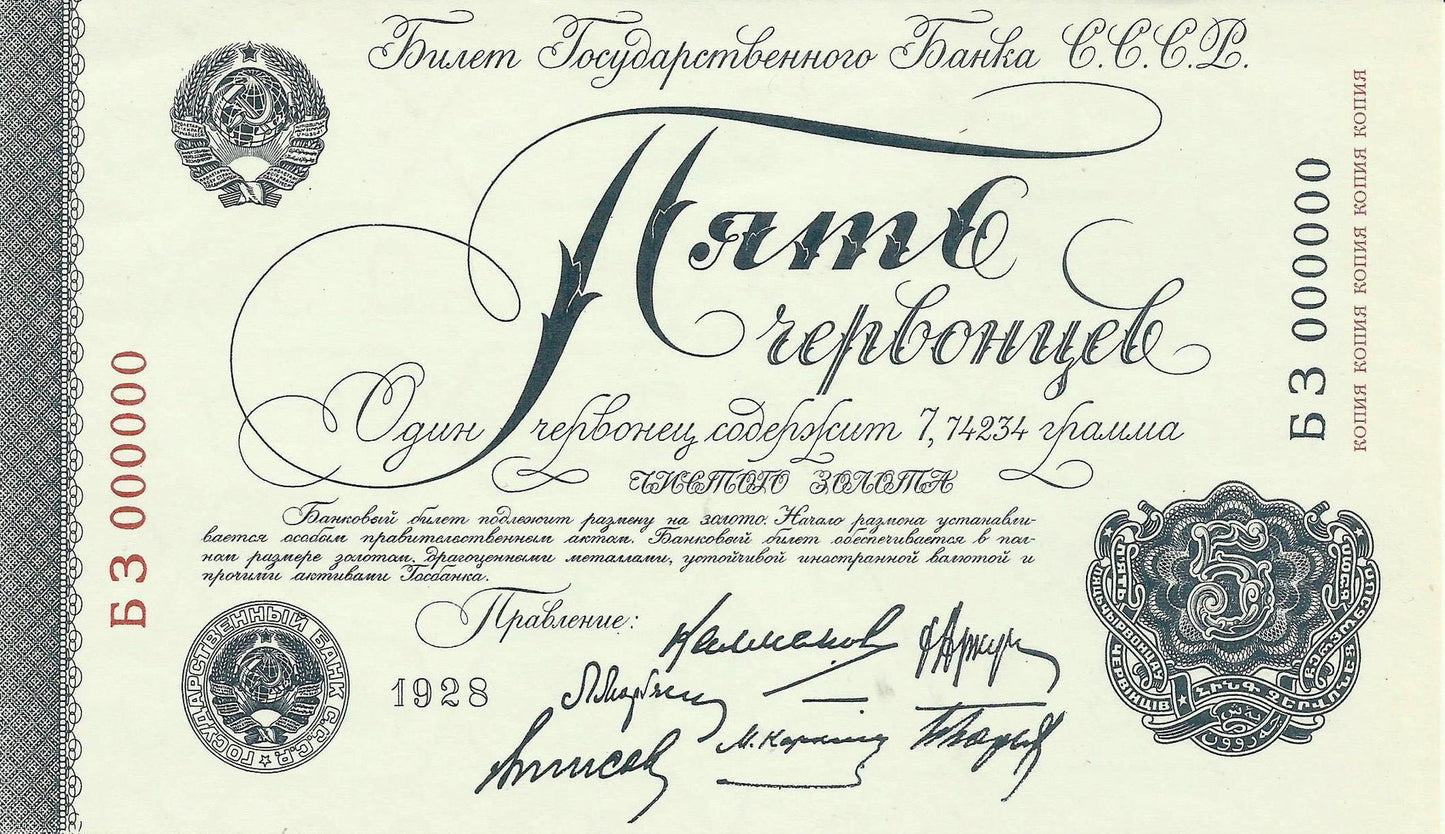 Билет Государственного Банка С.С.С.Р.
Пять
червонцев
Один червонец содержит 7,74234 грамма
ЧИСТОГО ЗОЛОТА
Банковый билет подлежит размену на золото. Начало размена устанавли-
вается особым правительственным актом. Банковый билет обеспечивается в пол-
ном размере золотом, драгоценными металлами, устойчивой иностранной валютой и
прочими активами Госбанка.
Правление:
1928
ГОСУДАРСТВЕННЫЙ БАНК С.С.С.Р.
БЗ 000000
БЗ 000000
КОПИЯ КОПИЯ КОПИЯ КОПИЯ КОПИЯ КОПИЯ
5
ЧЕРВІНЦІВ
ՀԻՆԳ ՉԵՐՎՈՆԵՑ